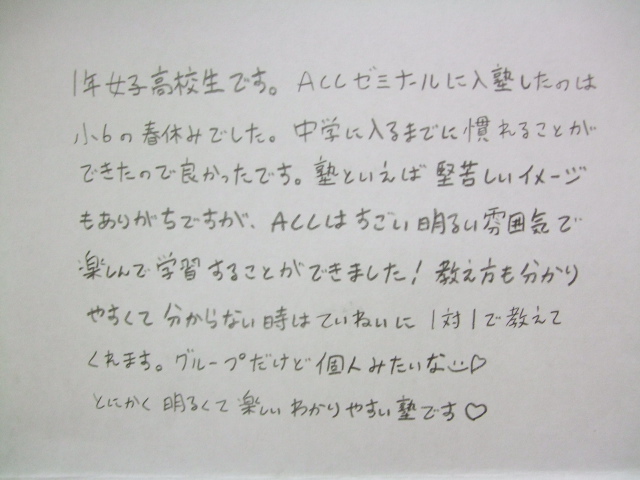 1年女子高校生です。ACLゼミナールに入塾したのは
小6の春休みでした。中学に入るまでに慣れることが
できたので良かったです。塾といえば堅苦しいイメージ
もありがちですが、ACLはすごい明るい雰囲気で
楽しんで学習することができました!教え方も分かり
やすくて分からない時はていねいに1対1で教えて
くれます。グループだけど個人みたいな☺♡
とにかく明るくて楽しいわかりやすい塾です♡